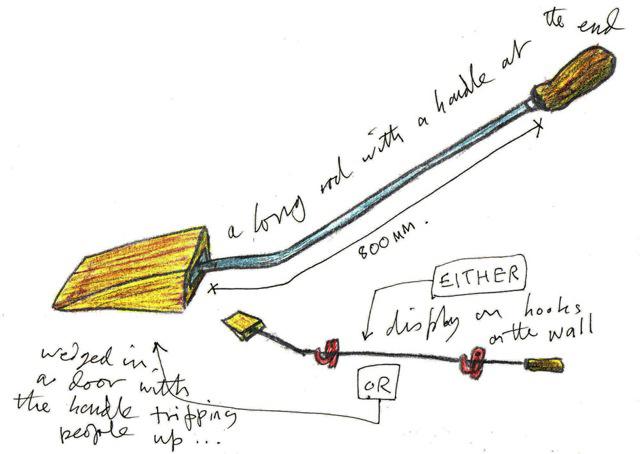 a long rod with a handle at the end
800MM.
EITHER
display on hooks
on the wall
OR
wedged in
a door with
the handle tripping
people up...